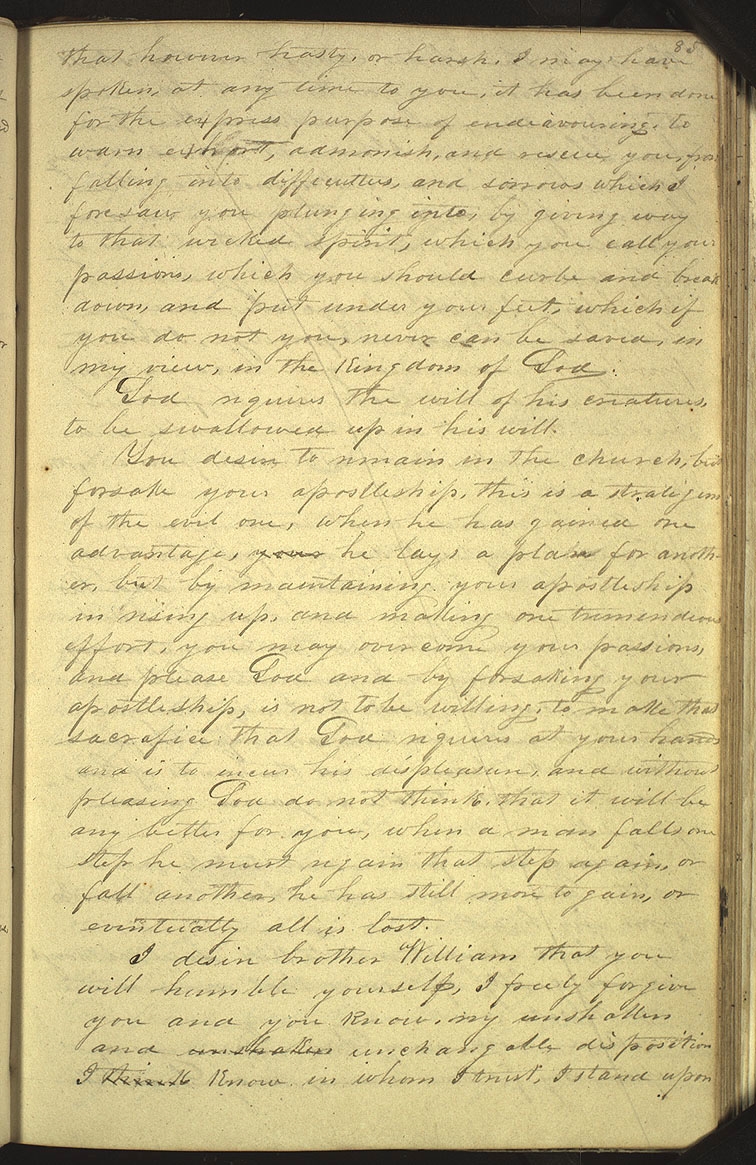 85
that however hasty, or harsh, I may have
spoken, at any time to you, it has been done
for the express purpose of endeavouring, to
warn exhort, admonish, and rescue you, from
falling into difficulties, and sorrows which I
foresaw you plunging into, by giving way
to that wicked spirit, which you call your
passions, which you should curbe and break
down, and put under your feet, which if
you do not you, never can be saved, in
my view, in the Kingdom of God.
God requires the will of his creatures,
to be swallowed up in his will.
You desire to remain in the church, but
forsake your apostleship, this is a stratigem
of the evil one, when he has gained one
advantage, your he lays a plan for anoth-
er, but by maintaining your apostleship
in rising up, and making one tremendious
effort, you may overcome your passions,
and please God and by forsaking your
apostleship, is not to be willing, to make that
sacrafice that God requires at your hands
and is to incur his displeasure, and without
pleasing God do not think, that it will be
any better for you, when a man falls one
step he must regain that step again, or
fall another, he has still more to gain, or
eventually all is lost.
I desire brother William that you
will humble yourself, I freely forgive
you and you know, my unshaken
and unshaken unchangable disposition
I think know in whom I trust, I stand upon